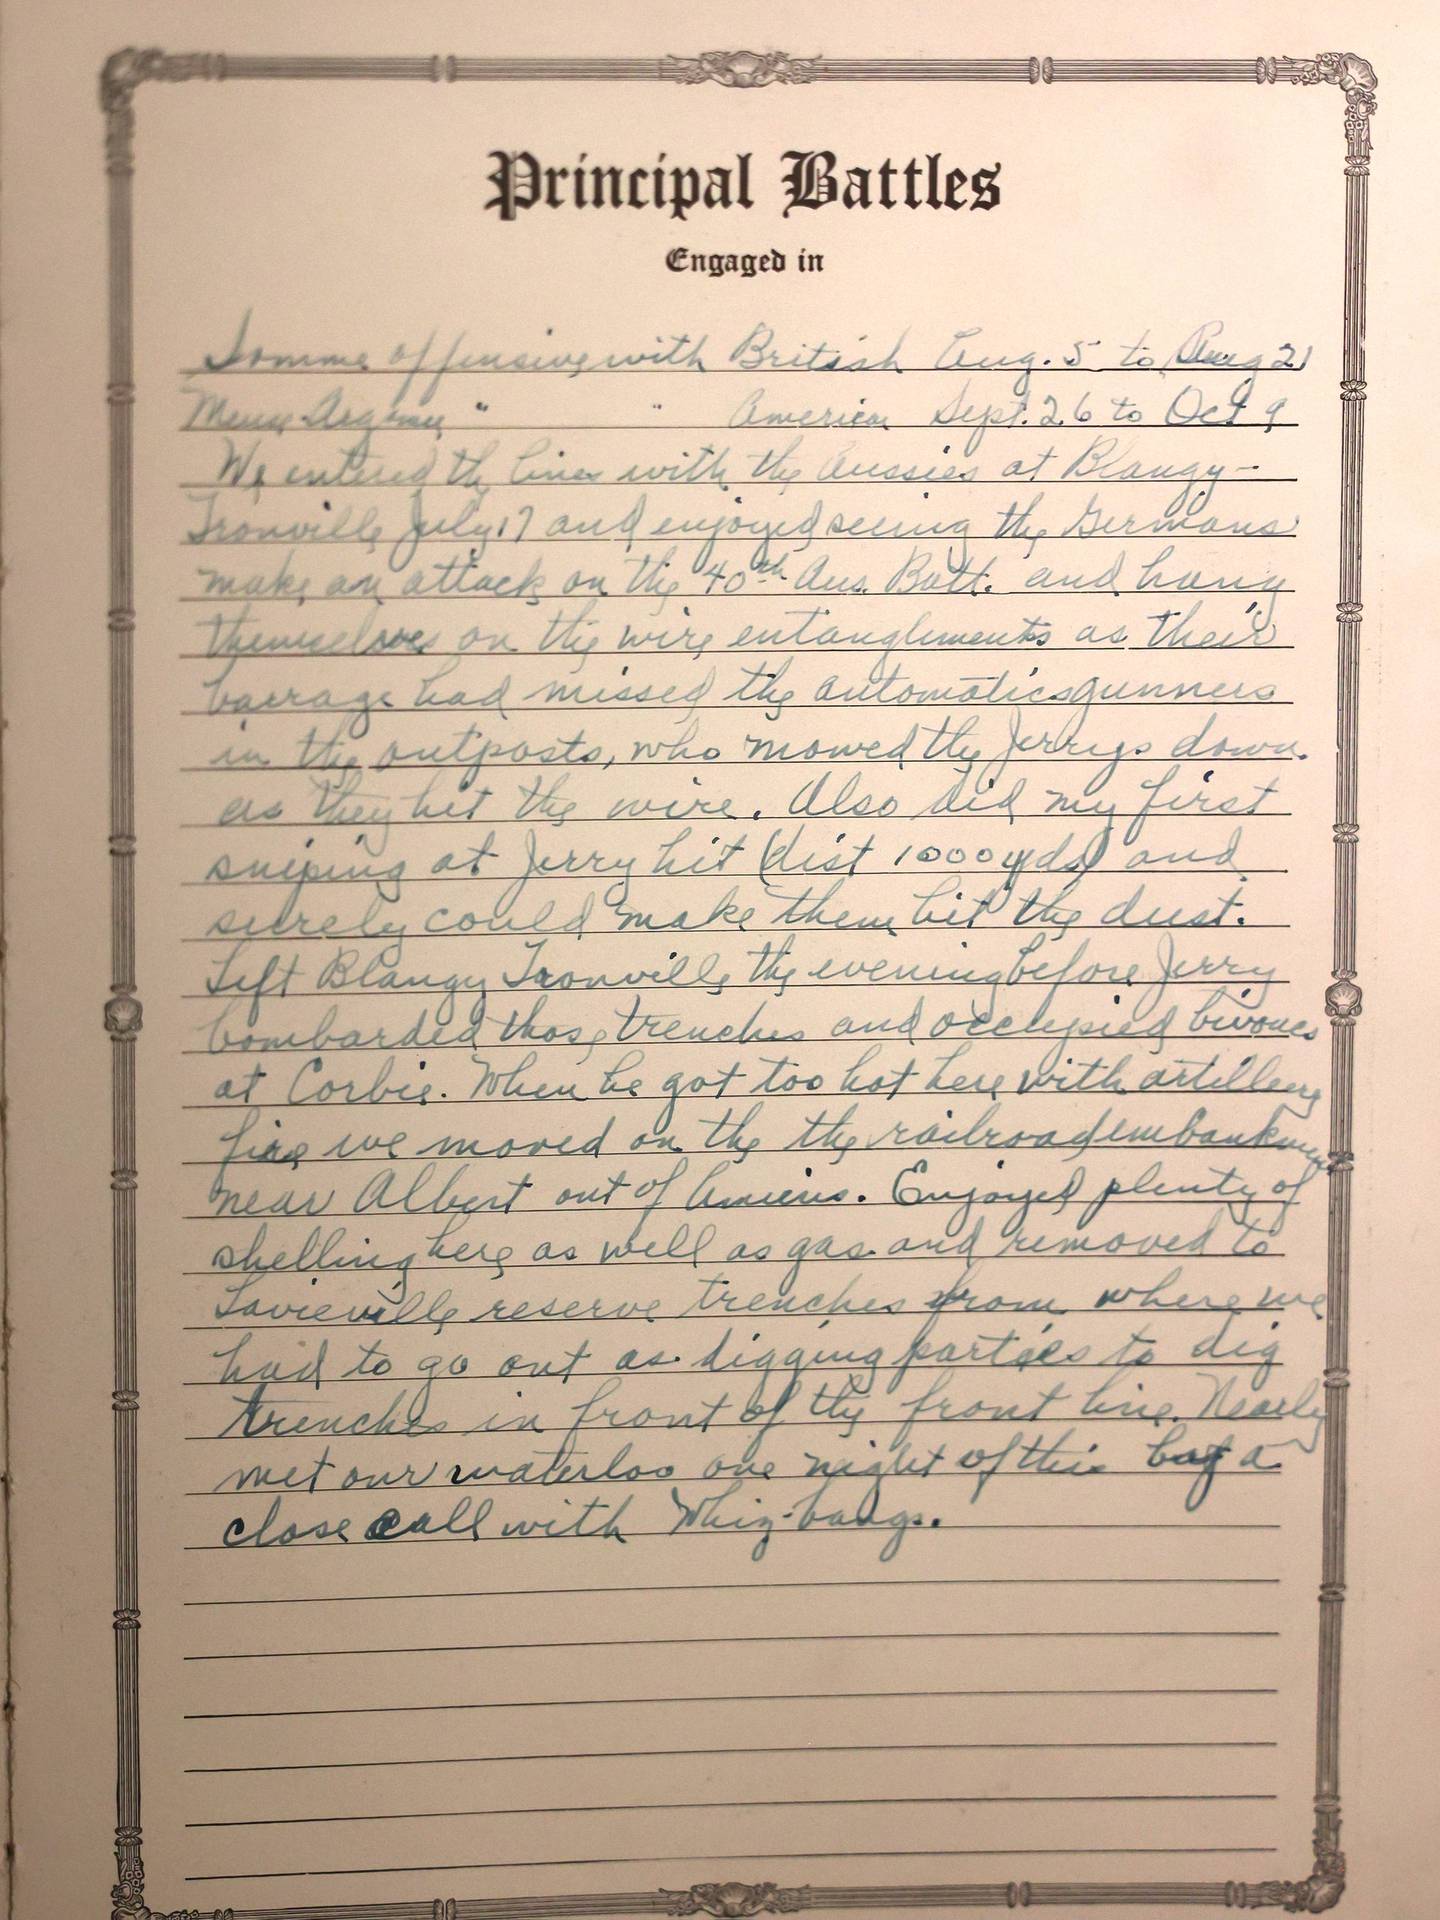 Principal Battles
Engaged in
Somme offensive with British Aug. 5 to Aug 21
Meuse Argonne " " America Sept. 26 to Oct 9
We entered the lines with the Aussies at Blangy-
Tronville July 17 and enjoyed seeing the Germans
make an attack on the 40th Aus. Batt. and hang
themselves on the wire entanglements as their
barrage had missed the automatics gunners
in the outposts, who mowed the Jerrys down
as they hit the wire. Also did my first
sniping at Jerry hit (dist 1000 yds) and
surely could make them bit the dust.
Left Blangy Tronville the evening before Jerry
bombarded those trenches and occupied bivouacs
at Corbie. When he got too hot here with artillery
fire we moved on the the railroad embankment
near Albert out of Amiens. Enjoyed plenty of
shelling here as well as gas and removed to
Lavieville reserve trenches from where we
had to go out as digging parties to dig
trenches in front of the front line. Nearly
met our waterloo one night of this by a
close call with Whiz-bangs.